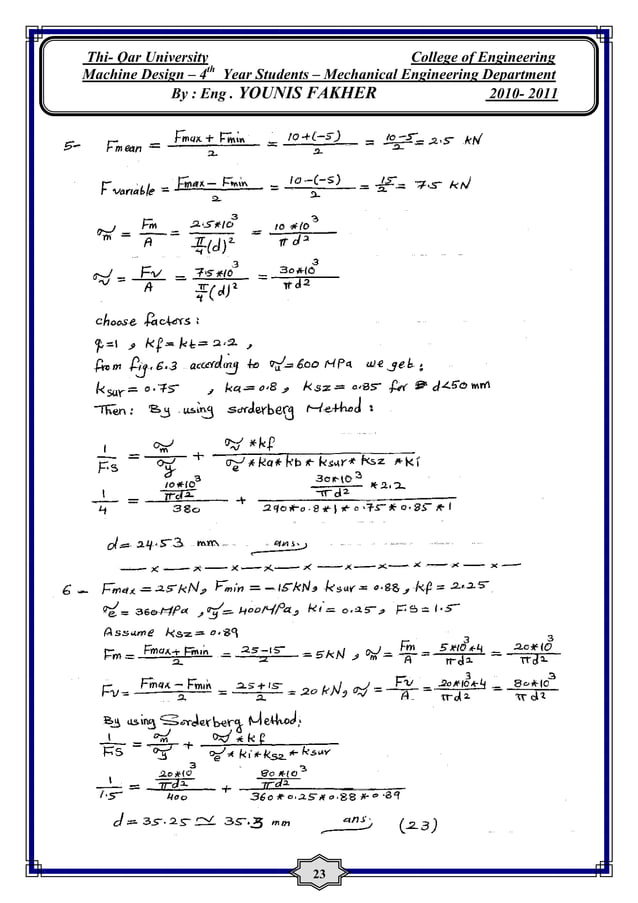 Thi- Qar University College of Engineering
Machine Design – 4th Year Students – Mechanical Engineering Department
By : Eng . YOUNIS FAKHER 2010- 2011
5- Fmean = (Fmax + Fmin)/2 = (10+(-5))/2 = (10-5)/2 = 2.5 kN
Fvariable = (Fmax - Fmin)/2 = (10-(-5))/2 = 15/2 = 7.5 kN
σm = Fm/A = 2.5*10³/(π/4 (d)²) = 10*10³/πd²
σv = Fv/A = 7.5*10³/(π/4 (d)²) = 30*10³/πd²
choose factors:
q=1, kf=kt=2.2,
from fig. 6.3 according to σu=600 MPa we get:
ksur=0.75 , ka=0.8, ksz=0.85 for d<50 mm
Then: By using Sorderberg Method:
1/F.S = σm/σy + (σv*kf)/(σe*ka*kb*ksur*ksz*ki)
1/4 = (10*10³/πd²)/380 + (30*10³/πd² *2.2)/(290*0.8*1*0.75*0.85*1)
d=24.53 mm ans.
—x—x—x—x—x—x—x—x—
6- Fmax=25kN, Fmin=-15kN, ksur=0.88, kf=2.25
σe=360MPa, σy=400MPa, ki=0.25, F.S=1.5
Assume ksz=0.89
Fm = (Fmax+Fmin)/2 = (25-15)/2 = 5kN, σm = Fm/A = 5*10³*4/πd² = 20*10³/πd²
Fv = (Fmax-Fmin)/2 = (25+15)/2 = 20 kN, σv = Fv/A = 20*10³*4/πd² = 80*10³/πd²
By using Sorderberg Method:
1/F.S = σm/σy + (σv*kf)/(σe*ki*ksz*ksur)
1/1.5 = (20*10³/πd²)/400 + (80*10³/πd²)/(360*0.25*0.88*0.89)
d=35.25 ≃ 35.3 mm ans. (23)
23